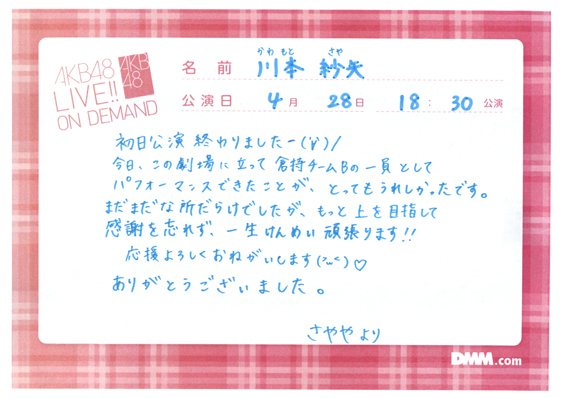 AKB48
LIVE!!
ON DEMAND
AKB
48
かわ もと さや
名前 川本 紗矢
公演日 4月 28日 18:30公演
初日公演 終わりましたー(˙꒳˙)/
今日、この劇場に立って 倉持チームBの一員として
パフォーマンスできたことが、とってもうれしかったです。
まだまだな所だらけでしたが、もっと上を目指して
感謝を忘れず、一生けんめい頑張ります!!
応援よろしくおねがいします(>ω<)♡
ありがとうございました。
さややより
DMM.com